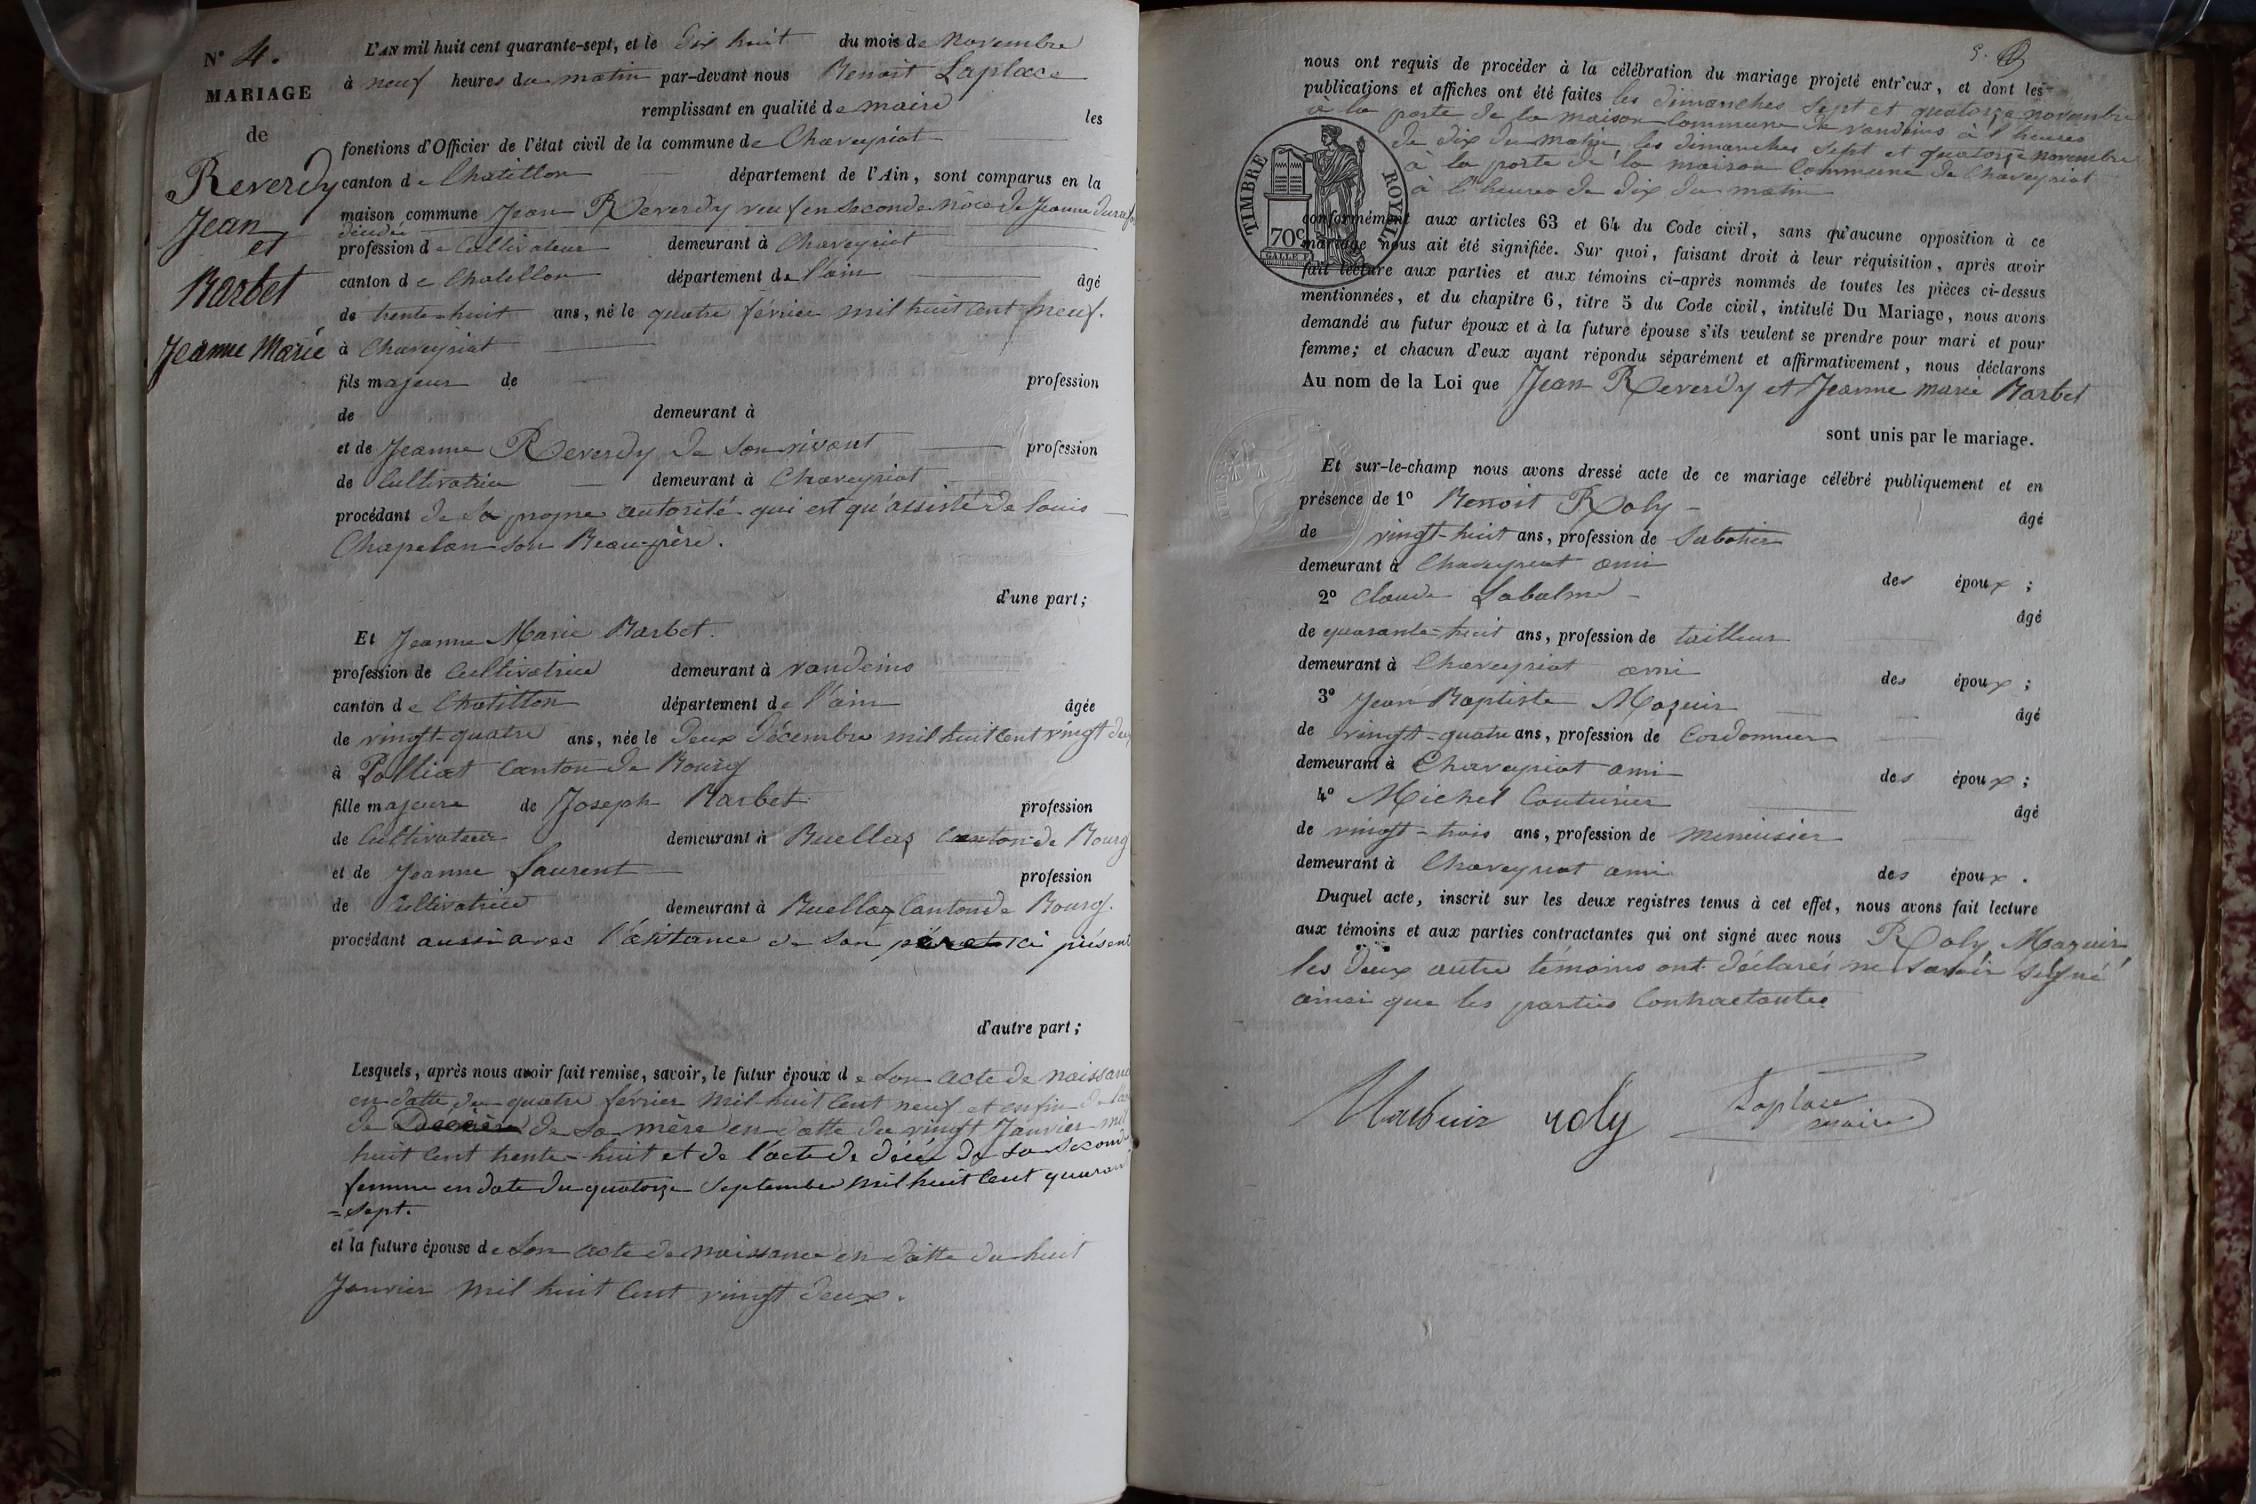 N° 4.
MARIAGE
de
Reverdy
Jean
et
Barbet
Jeanne Marie
L'AN mil huit cent quarante-sept, et le dix huit du mois de novembre
à neuf heures du matin par-devant nous Benoît Laplace
remplissant en qualité de maire les
fonctions d'Officier de l'état civil de la commune de Chaveyriat
canton de Chatillon département de l'Ain, sont comparus en la
maison commune Jean Reverdy veuf en seconde nôce de Jeanne
profession de Cultivateur demeurant à Chaveyriat
canton de Chatillon département de l'ain âgé
de trente-huit ans, né le quatre février mil huit cent neuf.
à Chaveyriat
fils majeur de profession
de demeurant à
et de Jeanne Reverdy de son vivant profession
de Cultivatrice demeurant à Chaveyriat
procédant de sa propre autorité qui est qu'assisté de louis
Chapelan son Beau-père.
d'une part;
Et Jeanne Marie Barbet.
profession de Cultivatrice demeurant à vandeins
canton de Chatillon département de l'ain âgée
de vingt-quatre ans, née le deux décembre mil huit cent vingt deux
à Polliat canton de Bourg
fille majeure de Joseph Barbet profession
de Cultivateur demeurant à Buellas Canton de Bourg
et de Jeanne Laurent profession
de Cultivatrice demeurant à Buellas Canton de Bourg.
procédant aussi avec l'asistance de son père ici présent
d'autre part;
Lesquels, après nous avoir fait remise, savoir, le futur époux de son acte de naissance
en datte du quatre février mil huit cent neuf et enfin de
de de sa mère en datte du vingt Janvier mil
huit cent trente-huit et de l'acte de décé de sa seconde
femme en date du quatorze septembre mil huit cent quarante
=sept.
et la future épouse de son acte de naissance en datte du huit
Janvier mil huit cent vingt deux.
nous ont requis de procéder à la célébration du mariage projeté entr'eux, et dont les
publications et affiches ont été faites les dimanches sept et quatorze novembre
à la porte de la maison Commune de vandeins à l'heures
de dix du matin, les dimanches sept et quatorze novembre
à la porte de la maison Commune de Chaveyriat
à l'heures de dix du matin
TIMBRE ROYAL
70c
conformément aux articles 63 et 64 du Code civil, sans qu'aucune opposition à ce
mariage nous ait été signifiée. Sur quoi, faisant droit à leur réquisition, après avoir
fait lecture aux parties et aux témoins ci-après nommés de toutes les pièces ci-dessus
mentionnées, et du chapitre 6, titre 5 du Code civil, intitulé Du Mariage, nous avons
demandé au futur époux et à la future épouse s'ils veulent se prendre pour mari et pour
femme; et chacun d'eux ayant répondu séparément et affirmativement, nous déclarons
Au nom de la Loi que Jean Reverdy et Jeanne marie Barbet
sont unis par le mariage.
Et sur-le-champ nous avons dressé acte de ce mariage célébré publiquement et en
présence de 1° Benoit Roly âgé
de vingt-huit ans, profession de Sabotier
demeurant à Chaveyriat ami des époux;
2° Claude Labalme âgé
de quarante-huit ans, profession de tailleur
demeurant à Chaveyriat ami des époux;
3° Jean Baptiste Mazuir âgé
de vingt-quatre ans, profession de Cordonnier
demeurant à Chaveyriat ami des époux;
4° Michel Couturier âgé
de vingt-trois ans, profession de menuisier
demeurant à Chaveyriat ami des époux.
Duquel acte, inscrit sur les deux registres tenus à cet effet, nous avons fait lecture
aux témoins et aux parties contractantes qui ont signé avec nous Roly, Mazuir
les deux autre temoins ont déclarés ne savoir signé
ainsi que les parties Contractantes
Mazuir roly Laplace
maire